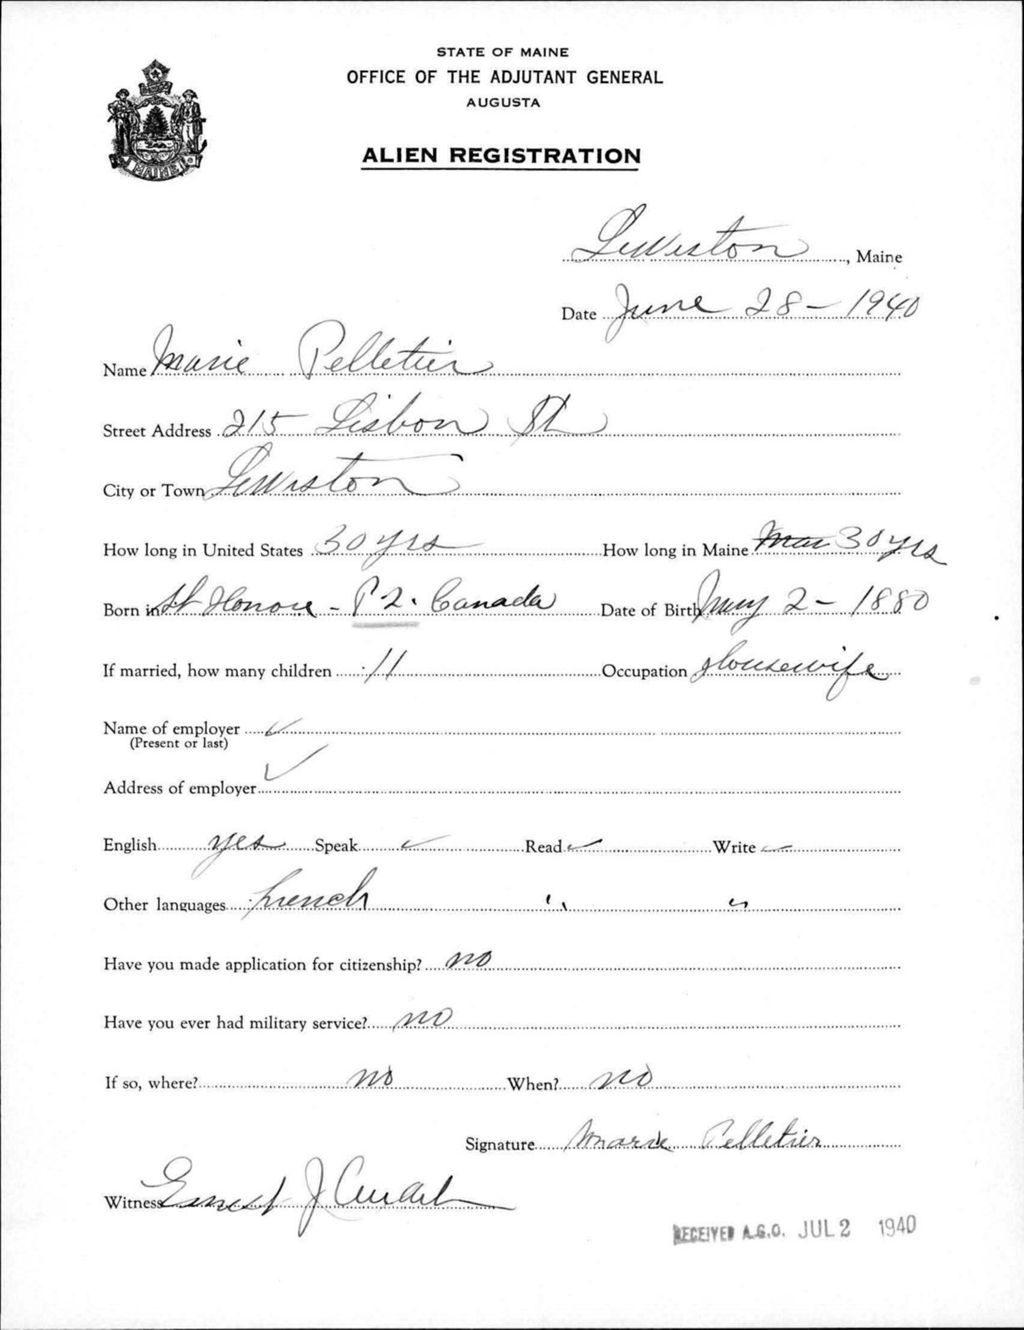 STATE OF MAINE
OFFICE OF THE ADJUTANT GENERAL
AUGUSTA
ALIEN REGISTRATION
MAINE
Lewiston, Maine
Date June 28 - 1940
Name Marie Pelletier
Street Address 215 Lisbon St
City or Town Lewiston
How long in United States 30 yrs How long in Maine 30 yrs
Born in St Honore - P2. Canada Date of Birth May 2 - 1880
If married, how many children 11 Occupation Housewife
Name of employer ✓
(Present or last)
Address of employer ✓
English yes Speak ✓ Read ✓ Write ✓
Other languages French " "
Have you made application for citizenship? no
Have you ever had military service? no
If so, where? no When? no
Signature Marie Pelletier
Witness Ernest J
RECEIVED A.G.O. JUL 2 1940